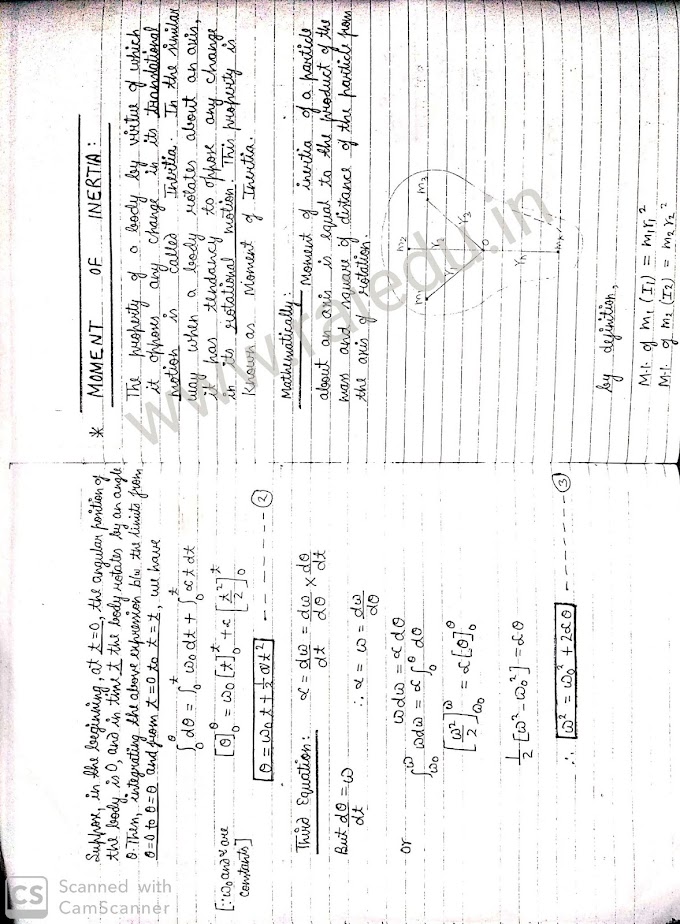 Suppose, in the beginning, at t=0, the angular position of
the body is 0, and in time t the body rotates by an angle
θ. Then, integrating the above expression b/w the limits from
θ=0 to θ=θ and from t=0 to t=t, we have
∫₀^θ dθ = ∫₀^t ω₀ dt + ∫₀^t αt dt
[∵ ω₀ and α are constants]
[θ]₀^θ = ω₀ [t]₀^t + α [t²/2]₀^t
θ = ω₀t + ½αt² - - - - - - ②
Third Equation: α = dω/dt = dω/dθ × dθ/dt
But dθ/dt = ω ∴ α = ω = dω/dθ
or ωdω = α dθ
∫ω₀^ω ωdω = α ∫₀^θ dθ
[ω²/2]ω₀^ω = α[θ]₀^θ
½ [ω² - ω₀²] = αθ
∴ ω² = ω₀² + 2αθ - - - - - - - ③
* MOMENT OF INERTIA:
The property of a body by virtue of which
it opposes any change in its translational
motion is called Inertia. In the similar
way when a body rotates about an axis,
it has tendancy to oppose any change
in its rotational motion. This property is
known as Moment of Inertia.
Mathematically: Moment of inertia of a particle
about an axis is equal to the product of the
mass and square of distance of the particle from
the axis of rotation.
m₂
m₃
m₁
r₁
r₂
r₃
O
rₙ
mₙ
by definition,
M.I. of m₁ (I₁) = m₁r₁²
M.I. of m₂ (I2) = m₂r₂²
www.rajedu.in
CS
Scanned with
CamScanner